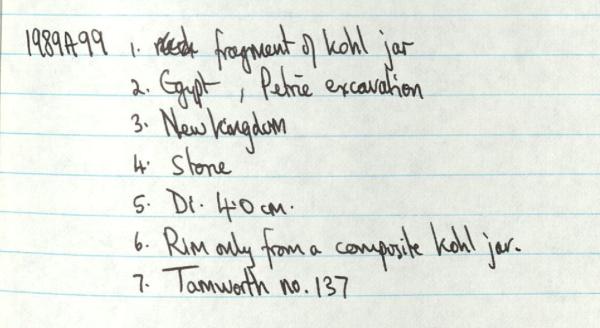 1989A99 1. fragment of kohl jar
2. Egypt, Petrie excavation
3. New kingdom
4. Stone
5. Di. 4.0 cm.
6. Rim only from a composite kohl jar.
7. Tamworth no. 137